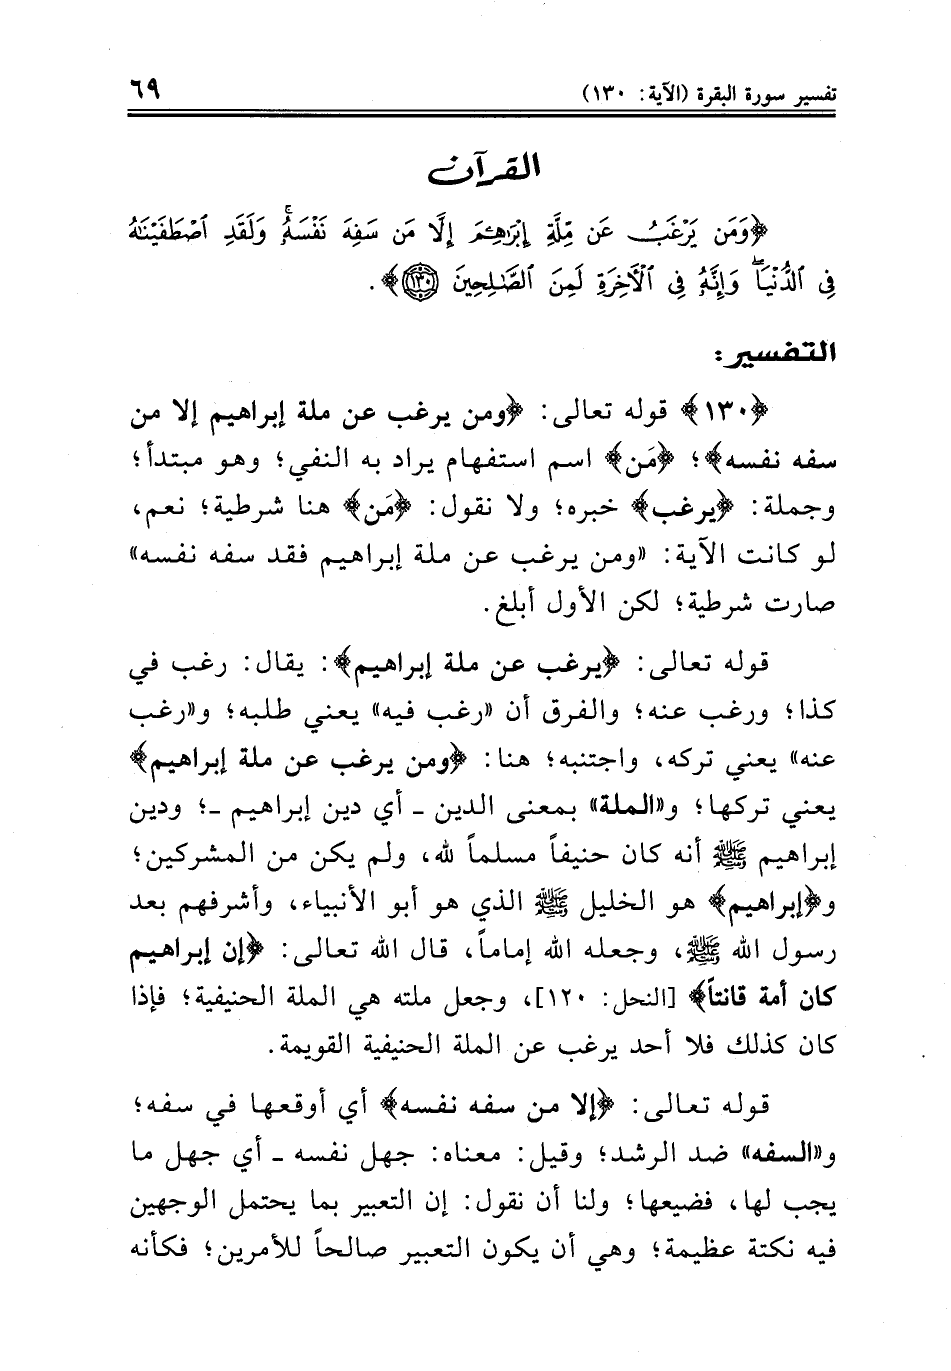 تفسير سورة البقرة (الآية: ١٣٠) ٦٩
القرآن
﴿وَمَن يَرْغَبُ عَن مِّلَّةِ إِبْرَٰهِـۧمَ إِلَّا مَن سَفِهَ نَفْسَهُۥۚ وَلَقَدِ ٱصْطَفَيْنَٰهُ
فِى ٱلدُّنْيَاۖ وَإِنَّهُۥ فِى ٱلْـَٔاخِرَةِ لَمِنَ ٱلصَّٰلِحِينَ ١٣٠﴾.
التفسير:
﴿١٣٠﴾ قوله تعالى: ﴿ومن يرغب عن ملة إبراهيم إلا من
سفه نفسه﴾؛ ﴿مَن﴾ اسم استفهام يراد به النفي؛ وهو مبتدأ؛
وجملة: ﴿يرغب﴾ خبره؛ ولا نقول: ﴿مَن﴾ هنا شرطية؛ نعم،
لو كانت الآية: «ومن يرغب عن ملة إبراهيم فقد سفه نفسه»
صارت شرطية؛ لكن الأول أبلغ.
قوله تعالى: ﴿يرغب عن ملة إبراهيم﴾: يقال: رغب في
كذا؛ ورغب عنه؛ والفرق أن «رغب فيه» يعني طلبه؛ و«رغب
عنه» يعني تركه، واجتنبه؛ هنا: ﴿ومن يرغب عن ملة إبراهيم﴾
يعني تركها؛ و«الملة» بمعنى الدين ـ أي دين إبراهيم ـ؛ ودين
إبراهيم ﷺ أنه كان حنيفاً مسلماً لله، ولم يكن من المشركين؛
و﴿إبراهيم﴾ هو الخليل ﷺ الذي هو أبو الأنبياء، وأشرفهم بعد
رسول الله ﷺ، وجعله الله إماماً، قال الله تعالى: ﴿إن إبراهيم
كان أمة قانتاً﴾ [النحل: ١٢٠]، وجعل ملته هي الملة الحنيفية؛ فإذا
كان كذلك فلا أحد يرغب عن الملة الحنيفية القويمة.
قوله تعالى: ﴿إلا من سفه نفسه﴾ أي أوقعها في سفه؛
و«السفه» ضد الرشد؛ وقيل: معناه: جهل نفسه ـ أي جهل ما
يجب لها، فضيعها؛ ولنا أن نقول: إن التعبير بما يحتمل الوجهين
فيه نكتة عظيمة؛ وهي أن يكون التعبير صالحاً للأمرين؛ فكأنه